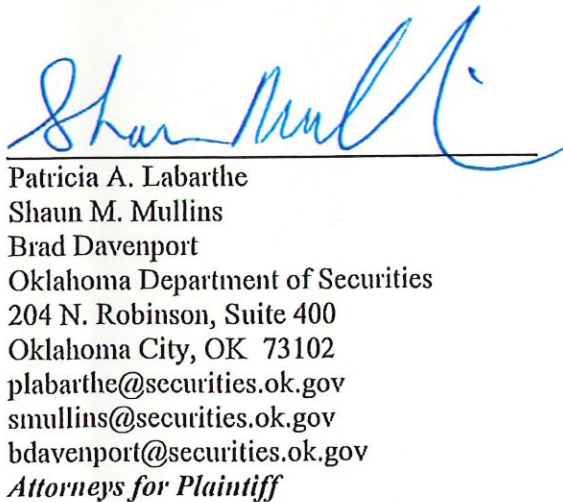 Shaun Mulli
Patricia A. Labarthe
Shaun M. Mullins
Brad Davenport
Oklahoma Department of Securities
204 N. Robinson, Suite 400
Oklahoma City, OK 73102
plabarthe@securities.ok.gov
smullins@securities.ok.gov
bdavenport@securities.ok.gov
Attorneys for Plaintiff